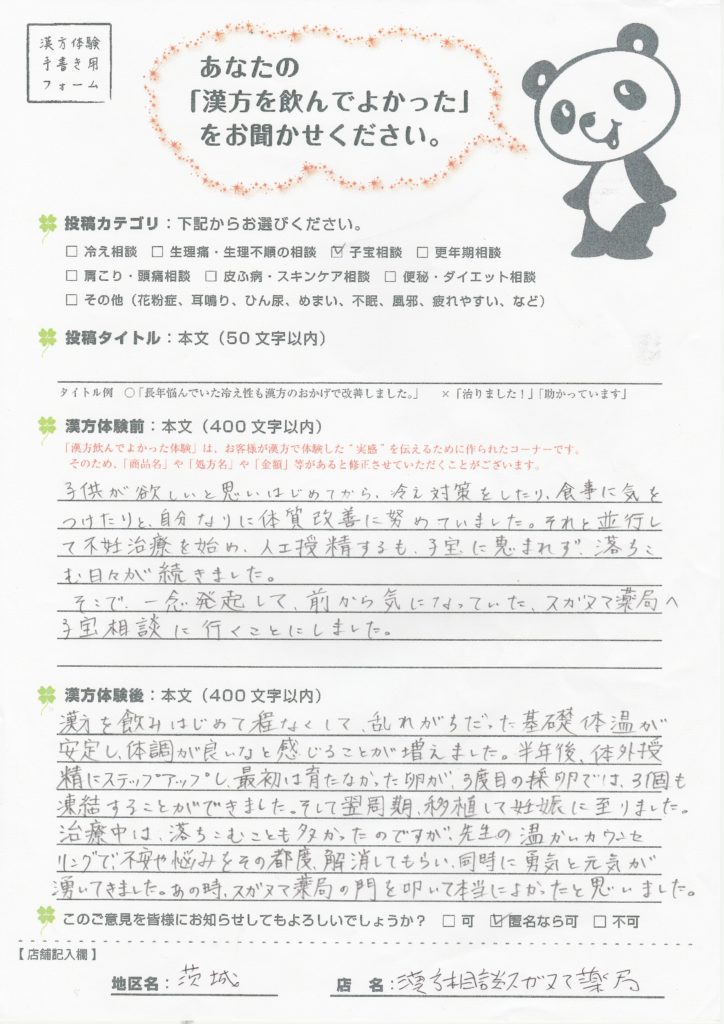 漢方体験
手書き用
フォーム
あなたの
「漢方を飲んでよかった」
をお聞かせください。
投稿カテゴリ：下記からお選びください。
□ 冷え相談 □ 生理痛・生理不順の相談 ☑ 子宝相談 □ 更年期相談
□ 肩こり・頭痛相談 □ 皮ふ病・スキンケア相談 □ 便秘・ダイエット相談
□ その他（花粉症、耳鳴り、ひん尿、めまい、不眠、風邪、疲れやすい、など）
投稿タイトル：本文（50文字以内）
タイトル例 ○「長年悩んでいた冷え性も漢方のおかげで改善しました。」 ×「治りました！」「助かっています」
漢方体験前：本文（400文字以内）
「漢方飲んでよかった体験」は、お客様が漢方で体験した“実感”を伝えるために作られたコーナーです。
そのため、「商品名」や「処方名」や「金額」等があると修正させていただくことがございます。
子供が欲しいと思いはじめてから、冷え対策をしたり、食事に気を
つけたりと、自分なりに体質改善に努めていました。それと並行し
て不妊治療を始め、人工授精するも、子宝に恵まれず、落ちこ
む日々が続きました。
そこで、一念発起して、前から気になっていた、スガヌマ薬局へ
子宝相談に行くことにしました。
漢方体験後：本文（400文字以内）
漢方を飲みはじめて程なくして、乱れがちだった基礎体温が
安定し、体調が良いなと感じることが増えました。半年後、体外授
精にステップアップし、最初は育たなかった卵が、3度目の採卵では、3個も
凍結することができました。そして翌周期、移植して妊娠に至りました。
治療中は、落ちこむことも多かったのですが、先生の温かいカウンセ
リングで不安や悩みをその都度、解消してもらい、同時に勇気と元気が
湧いてきました。あの時、スガヌマ薬局の門を叩いて本当によかったと思いました。
このご意見を皆様にお知らせしてもよろしいでしょうか？ □ 可 ☑ 匿名なら可 □ 不可
【店舗記入欄】
地区名：茨城 店 名：漢方相談スガヌマ薬局